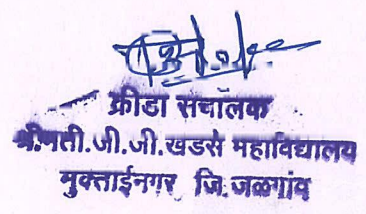 क्रीडा सचालक
श्रीमती.जी.जी.खडसे महाविद्यालय
मुक्ताईनगर जि.जळगांव